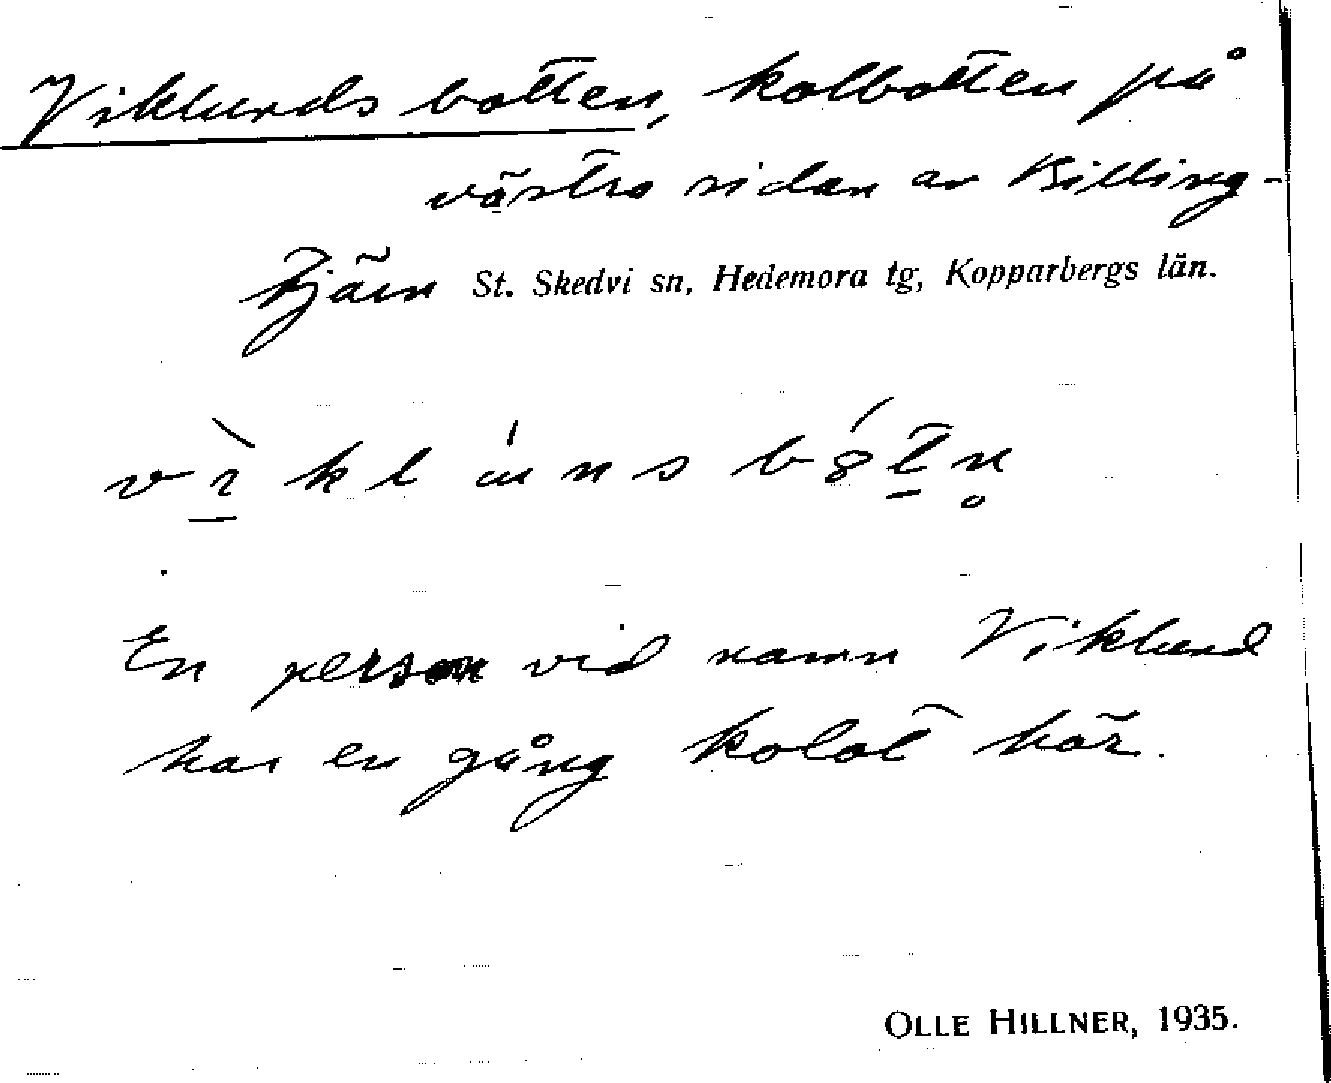 Viklunds botten, kolbotten på
västra sidan av Billing-
tjärn St. Skedvi sn, Hedemora tg, Kopparbergs län.
En person vid namn Viklund
har en gång kolat här.
OLLE HILLNER, 1935.